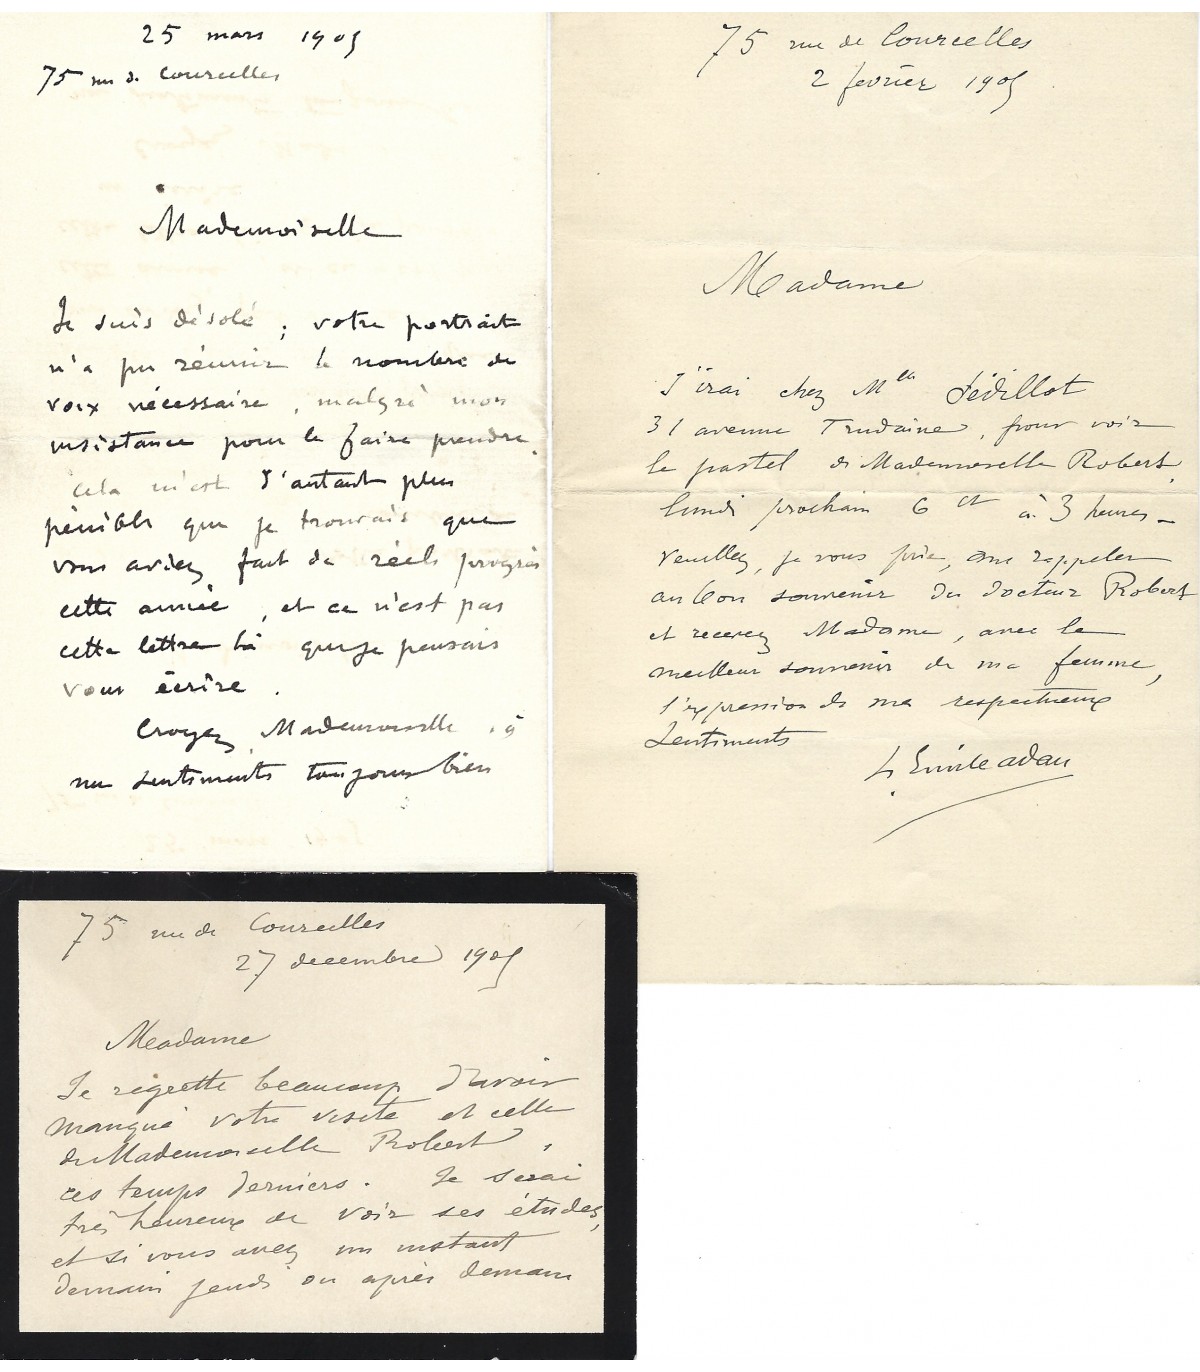 25 mars 1905
75 rue de Courcelles
Mademoiselle
Je suis désolé ; votre portrait
n'a pu réunir le nombre de
voix nécessaire, malgré mon
insistance pour le faire prendre.
Cela m'est d'autant plus
pénible que je trouvais que
vous aviez fait de réels progrès
cette année, et ce n'est pas
cette lettre là que je pensais
vous écrire.
Croyez, Mademoiselle, à
mes sentiments toujours bien
75 rue de Courcelles
2 février 1905
Madame
J'irai chez Mlle Sédillot
31 avenue Trudaine, pour voir
le pastel de Mademoiselle Robert,
lundi prochain 6 ct à 3 heures –
Veuillez, je vous prie, me rappeler
au bon souvenir du docteur Robert
et recevez Madame, avec le
meilleur souvenir de ma femme,
l'expression de mes respectueux
sentiments
L Emile adan
75 rue de Courcelles
27 decembre 1905
Madame
Je regrette beaucoup d'avoir
manqué votre visite et celle
de Mademoiselle Robert,
ces temps derniers. Je serai
très heureux de voir ses études,
et si vous avez un instant
demain jeudi ou après demain